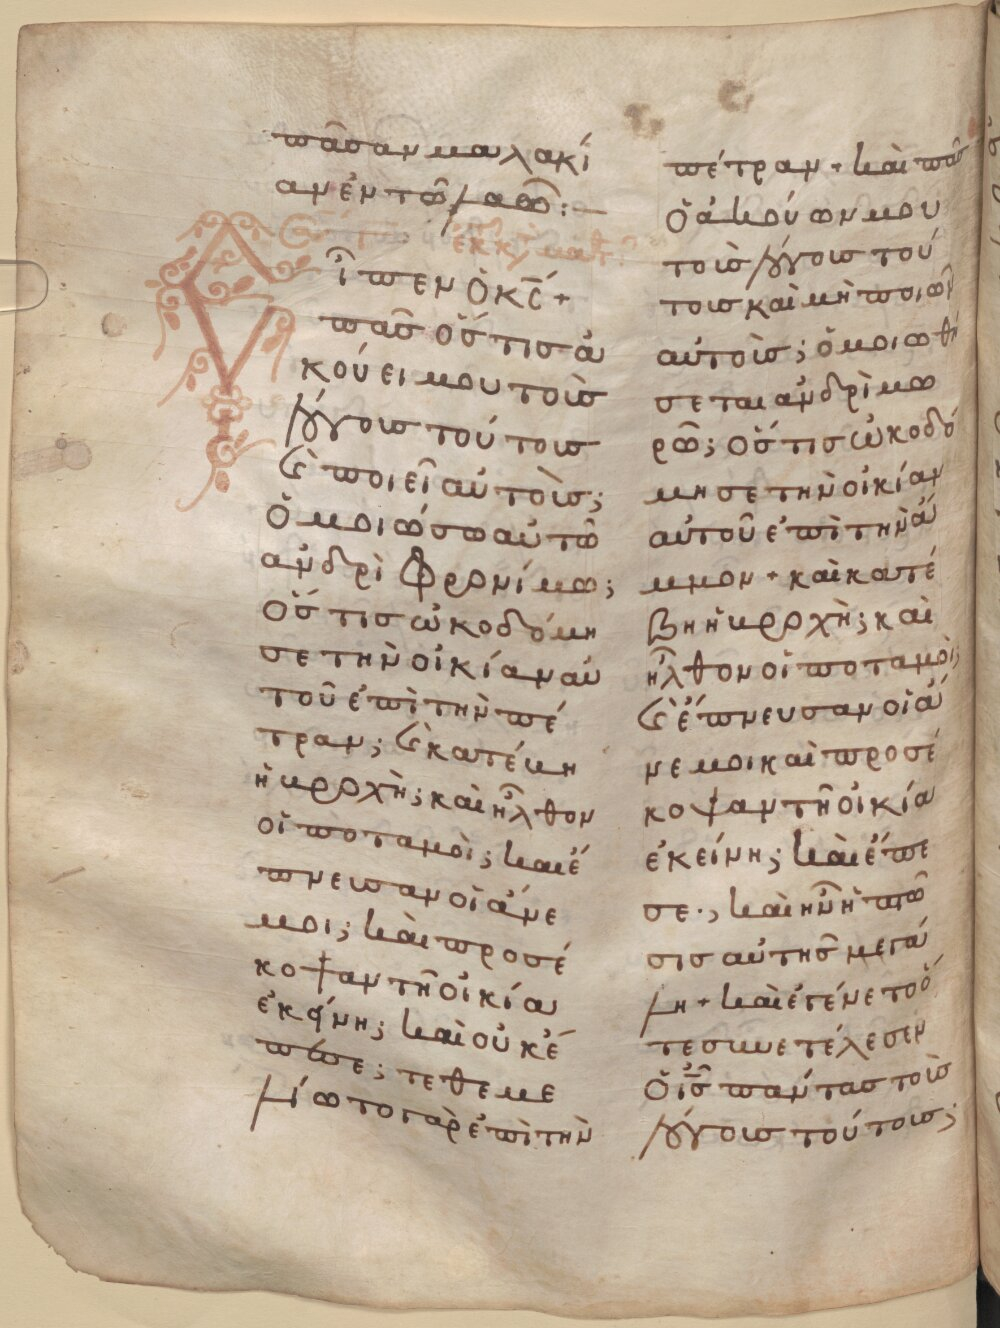 πᾶσαν μαλακί
αν ἐν τῶ λαῶ:
ἐκ κατ
ἶπεν ὁ κς̄ +
πᾶς ὅστις ἀ
κούει μου τοὺς
λόγους τούτους
ϗ ποιεῖ αὐτοὺς;
Ὁμοιώσω αὐτῶ
ανδρὶ Φρονίμω;
Ὅστις ὠκοδόμη
σε τὴν οἰκίαν αὐ
τοῦ ἐπὶ τὴν πέ
τραν; ϗ κατέβη
ἡ βροχὴ; καὶ ἦλθον
οἱ ποταμοὶ; καὶ ἔ
πνευσαν οἱ ἄνε
μοι; καὶ προσέ
κοψαν τῆ οἰκία
ἐκείνη; καὶ οὐκ ἔ
πεσε; τεθεμε
λίωτο γὰρ ἐπὶ τὴν
πέτραν + καὶ πᾶς
Ὁ ἀκούων μου
τοὺς λόγους τού
τους καὶ μὴ ποιῶν
αὐτοὺς; ὁμοιωθή
σεται ανδρὶ μω
ρῶ; Ὅστις ὠκοδό
μησε τὴν οἰκίαν
αὐτοῦ ἐπὶ τὴν ἄ
μμον + καὶ κατέ
βη ἡ βροχὴ; καὶ
ἦλθον οἱ ποταμοὶ;
ϗ ἔπνευσαν οἱ ἄ
νεμοι καὶ προσέ
κοψαν τῆ οἰκία
ἐκείνη; καὶ ἔπε
σε·, καὶ ἦν ἡ πτῶ
σις αὐτῆς μεγά
λη + καὶ ἐγένετο ὅ
τε συνετέλεσεν
Ὁ ις̄ πάντας τοὺς
λόγους τούτους;